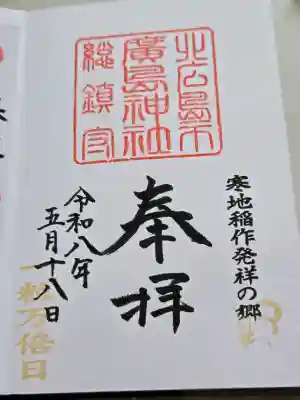 北広島市
廣島神社
総鎮守
寒地稲作発祥の郷
奉拝
令和八年
五月十八日
一粒万倍日